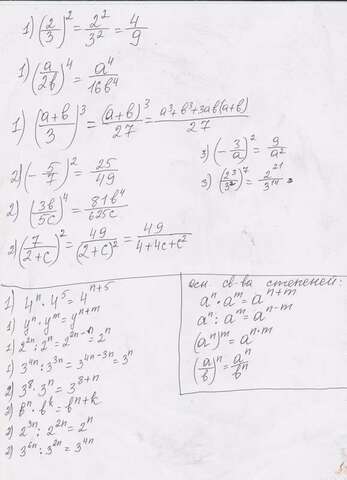 1) (2/3)² = 2²/3² = 4/9
1) (a/2b)⁴ = a⁴/16b⁴
1) ((a+b)/3)³ = (a+b)³/27 = (a³+b³+3ab(a+b))/27
2) (-5/7)² = 25/49
3) (-3/a)² = 9/a²
2) (3b/5c)⁴ = 81b⁴/625c
3) (2³/3²)⁷ = 2²¹/3¹⁴
2) (7/(2+c))² = 49/(2+c)² = 49/(4+4c+c²)
1) 4ⁿ · 4⁵ = 4ⁿ⁺⁵
1) yⁿ · yᵐ = yⁿ⁺ᵐ
1) 2²ⁿ : 2ⁿ = 2²ⁿ⁻ⁿ = 2ⁿ
1) 3⁴ⁿ : 3³ⁿ = 3⁴ⁿ⁻³ⁿ = 3ⁿ
2) 3⁸ · 3ⁿ = 3⁸⁺ⁿ
2) bⁿ · bᵏ = bⁿ⁺ᵏ
2) 2³ⁿ : 2²ⁿ = 2ⁿ
2) 3⁶ⁿ : 3²ⁿ = 3⁴ⁿ
Осн св-ва степеней:
aⁿ · aᵐ = aⁿ⁺ᵐ
aⁿ : aᵐ = aⁿ⁻ᵐ
(aⁿ)ᵐ = aⁿ·ᵐ
(a/b)ⁿ = aⁿ/bⁿ